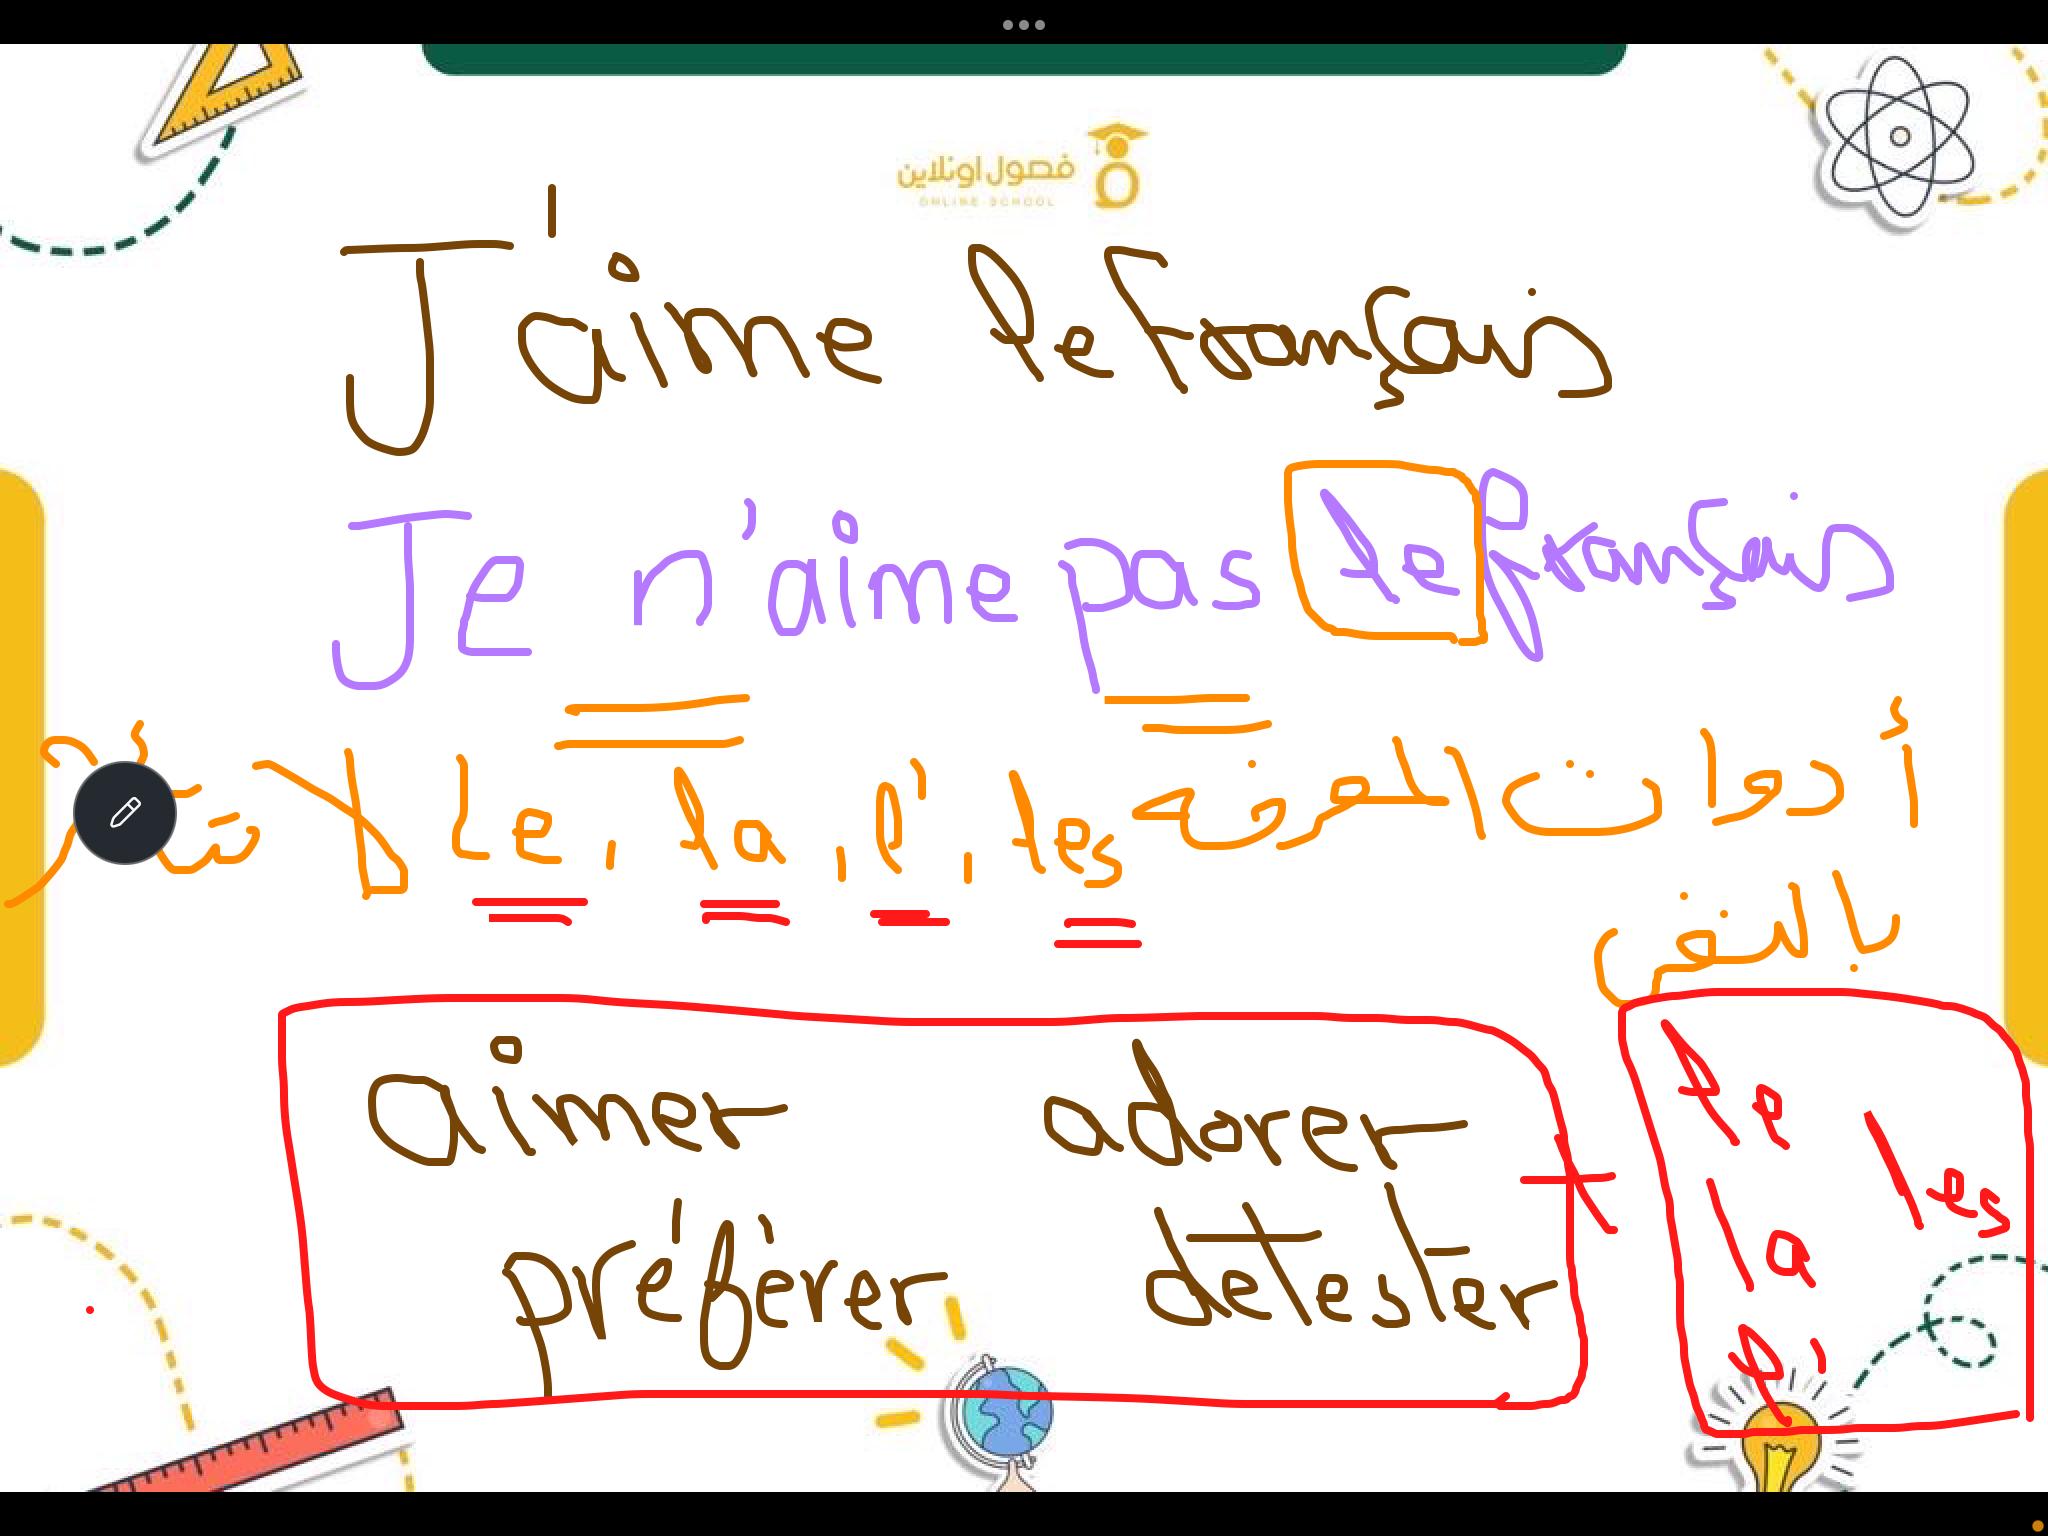 فصول اونلاين
ONLINE SCHOOL
J'aime le français
Je n'aime pas le français
أدوات المعرفه Le, la, l', les لا
بالنفي
aimer adorer + le les
préférer detester la
l'